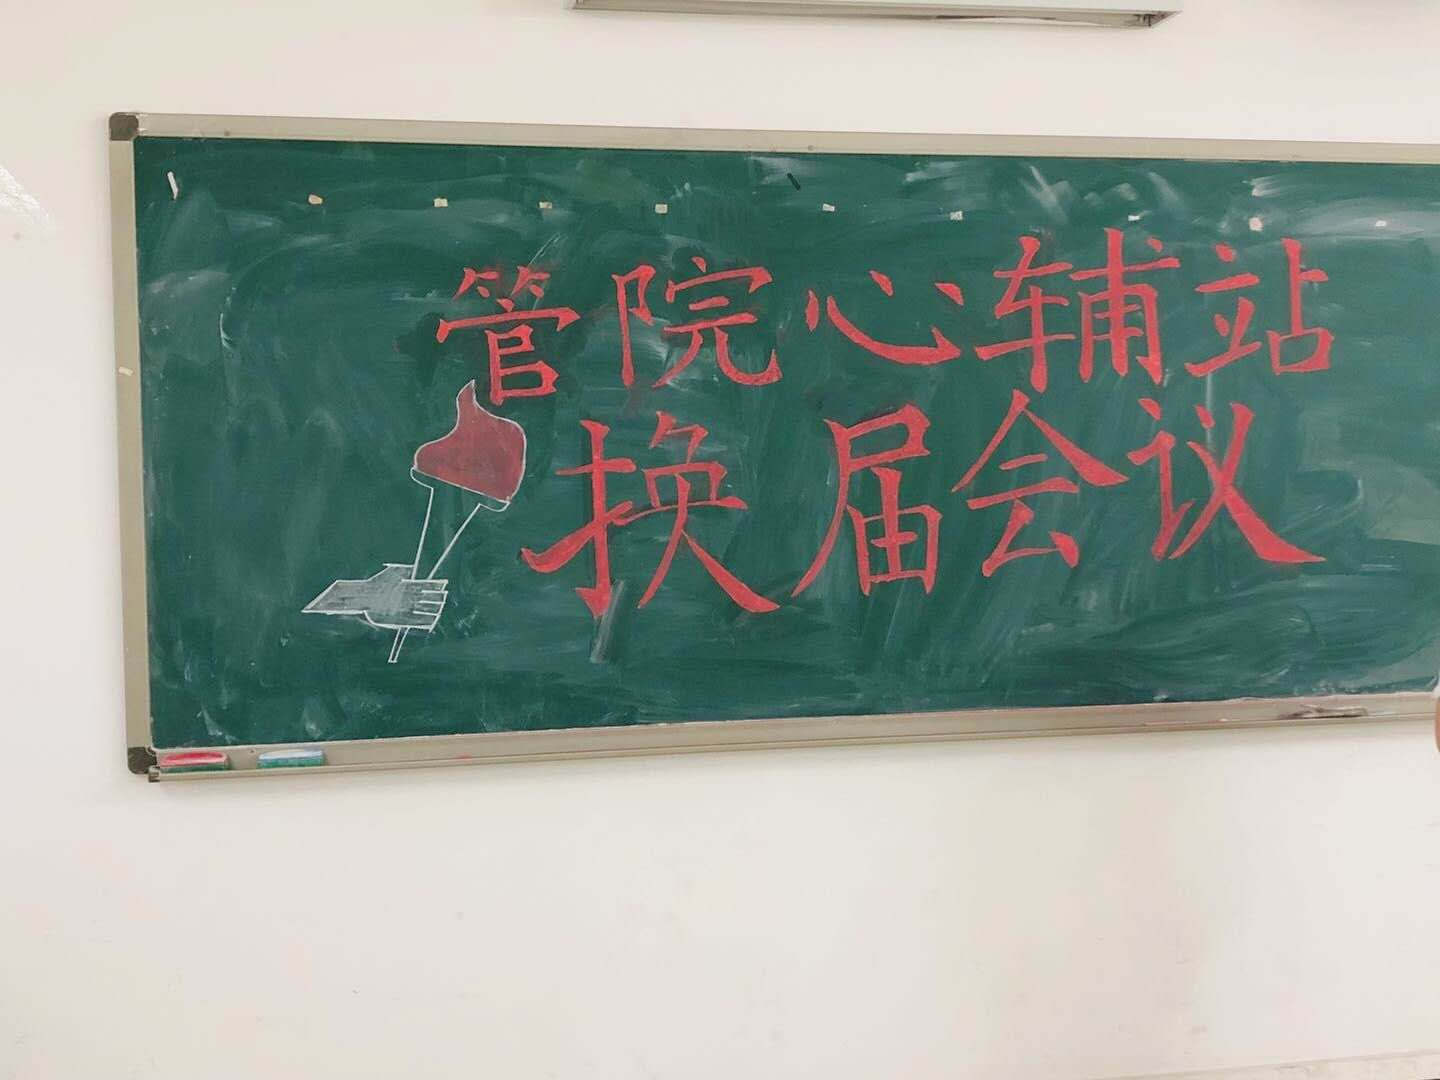 管院心辅站
换届会议